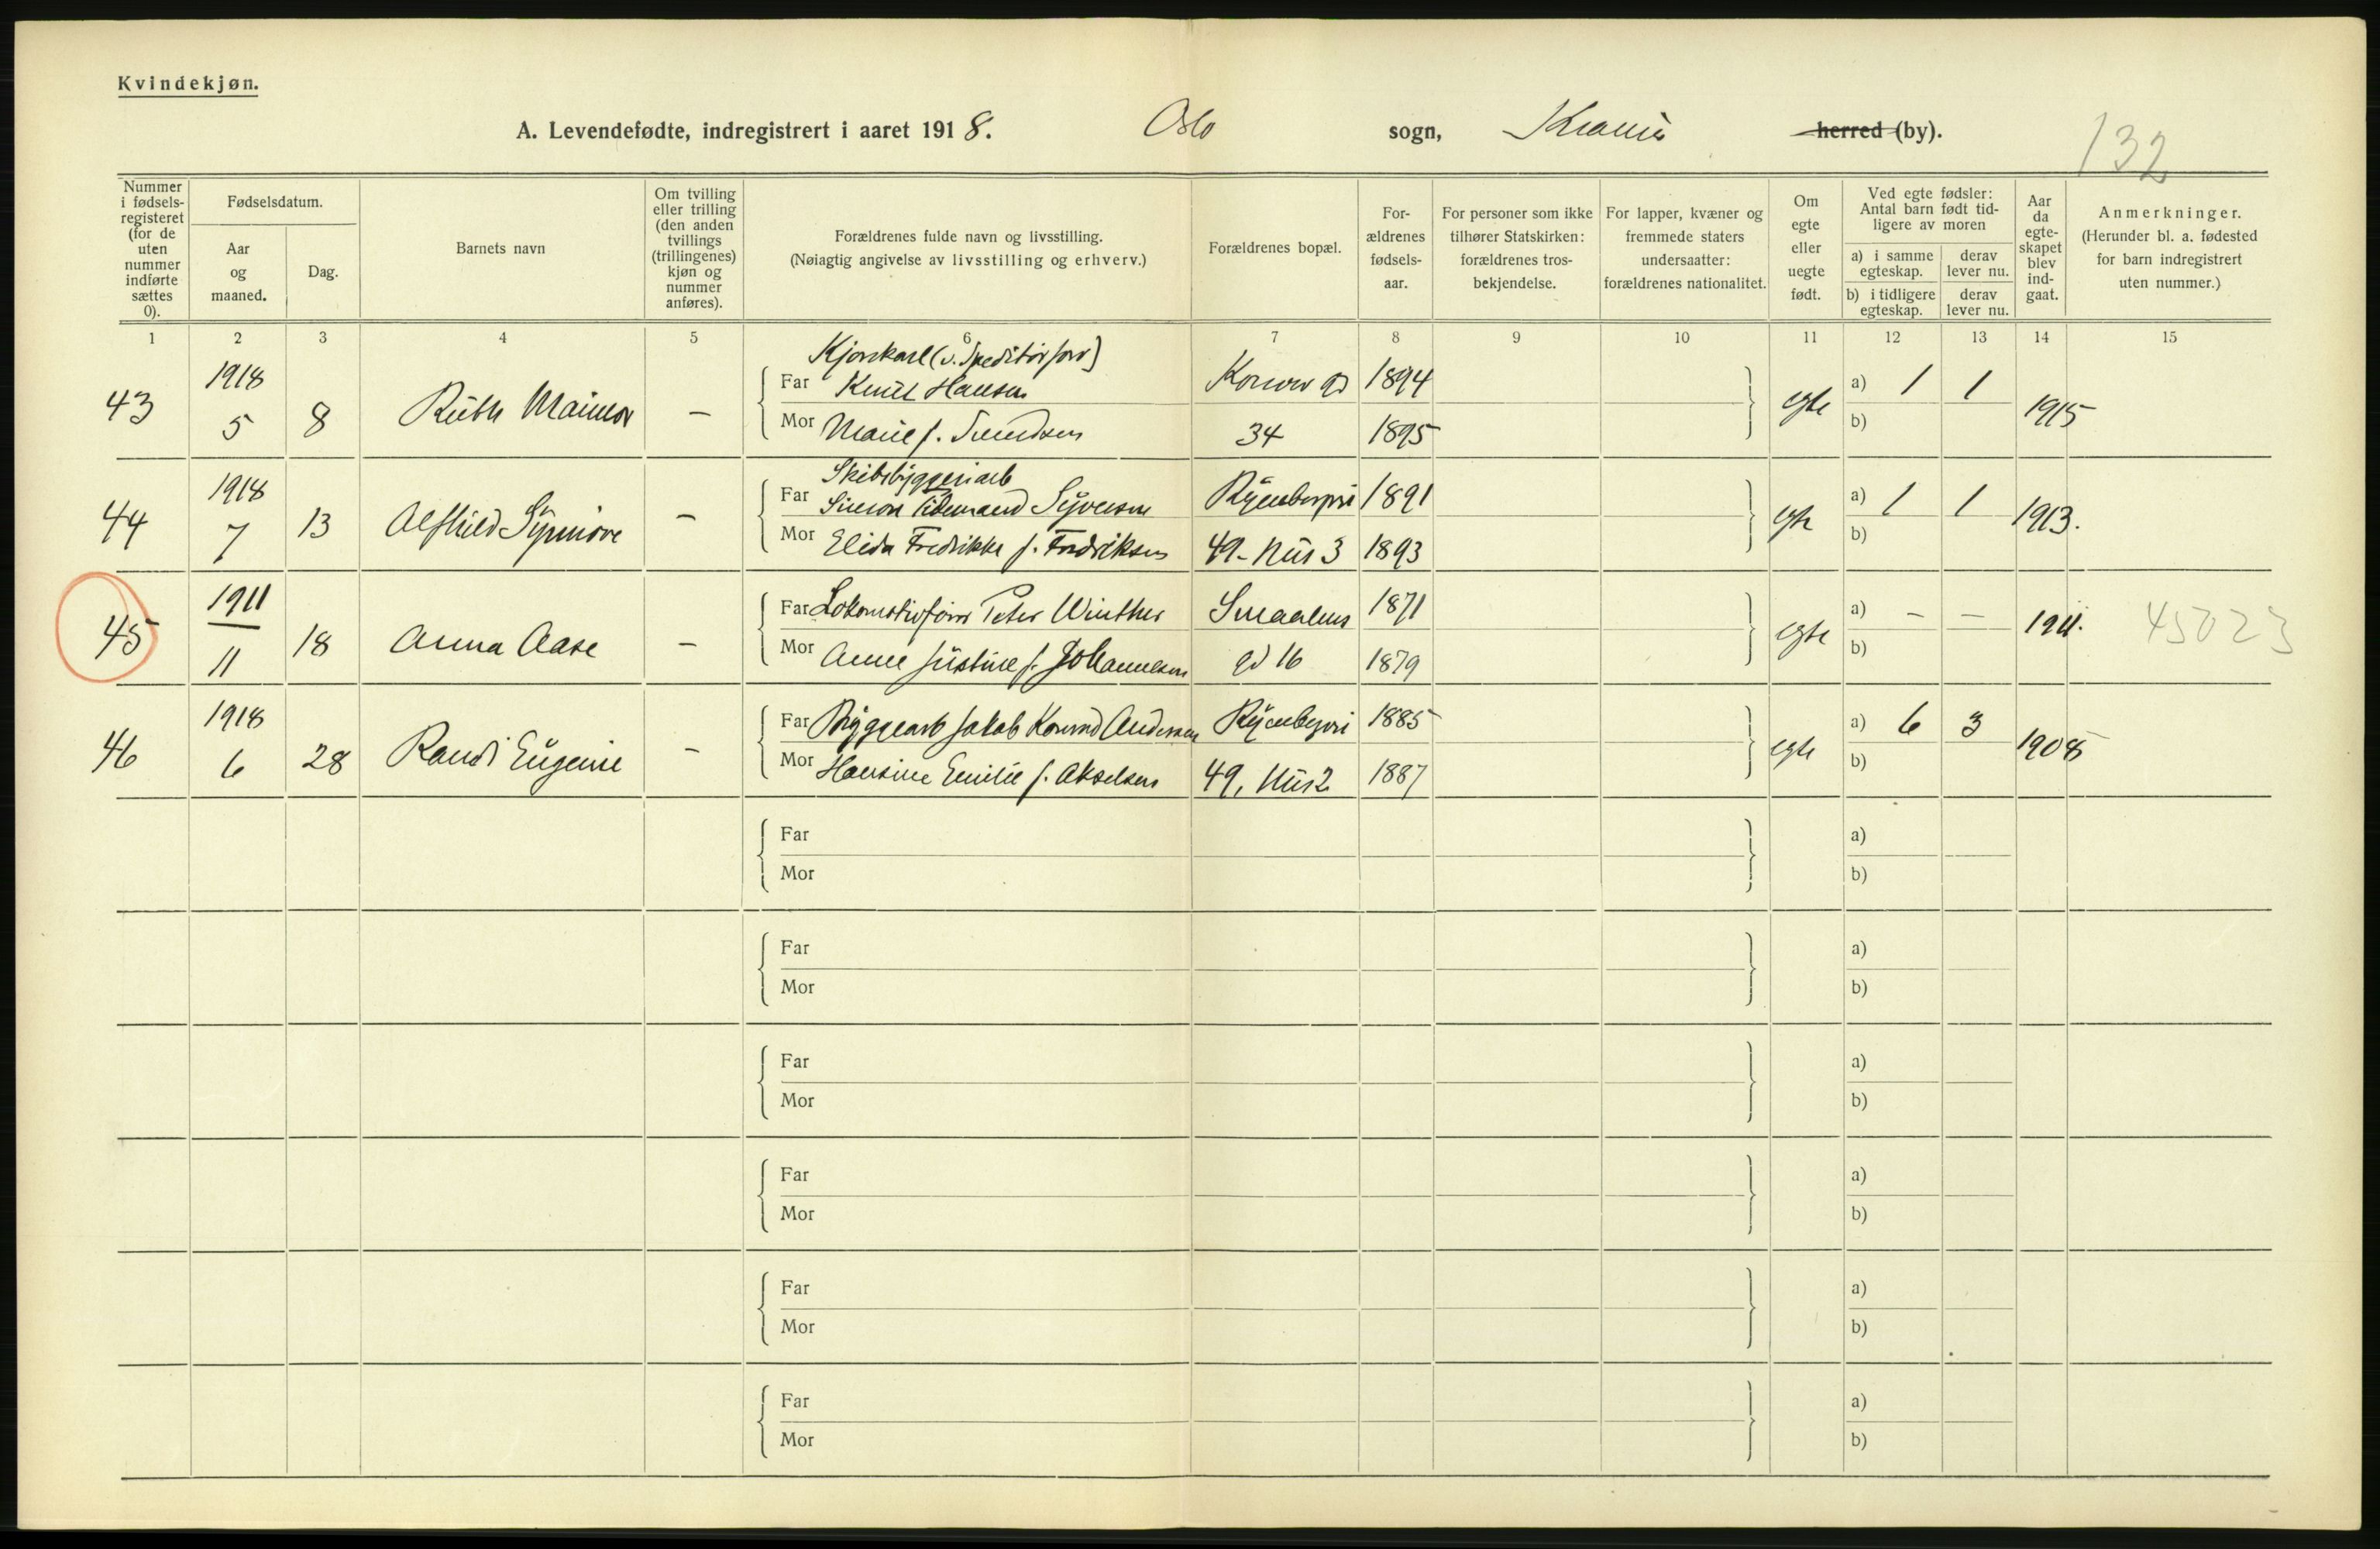 Kvindekjøn.
A. Levendefødte, indregistrert i aaret 1918. Oslo sogn, Kra̅nia herred (by).
132
Nummer i fødsels-registeret (for de uten nummer indførte sættes 0).
Fødselsdatum.
Aar og maaned.
Dag.
Barnets navn
Om tvilling eller trilling (den anden tvillings (trillingenes) kjøn og nummer anføres).
Forældrenes fulde navn og livsstilling.
(Nøiagtig angivelse av livsstilling og erhverv.)
Forældrenes bopæl.
For-ældrenes fødsels-aar.
For personer som ikke tilhører Statskirken: forældrenes tros-bekjendelse.
For lapper, kvæner og fremmede staters undersaatter: forældrenes nationalitet.
Om egte eller uegte født.
Ved egte fødsler: Antal barn født tid-ligere av moren
a) i samme egteskap.
derav lever nu.
b) i tidligere egteskap.
derav lever nu.
Aar da egte-skapet blev ind-gaat.
Anmerkninger.
(Herunder bl. a. fødested for barn indregistrert uten nummer.)
1 2 3 4 5 6 7 8 9 10 11 12 13 14 15
43 1918 5 8 Ruth –
Kjørekarl (v. Speditørforr)
Far Knut Hansen 1894
Mor Marie f. 34 1895
egte a) 1 1 b) 1915
44 1918 7 13 Alfhild Synnøve –
Skibsbyggeriarb
Far Simon Tidemand Syversen 1891
Mor Elida Fredrikke f. Fredriksen 49 - Hus 3 1893
egte a) 1 1 b) 1913.
45 1911 11 18 Anna Aase –
Far Lokomotivfører Peter Winther Smaalens 1871
Mor Anne Justine f. Johannesen gd 16 1879
egte a) – – b) 1911. 45023
46 1918 6 28 Randi Eugenie –
Far Bryggearb Jakob Konrad Andersen 1885
Mor Hansine Emilie f. Akselsen 49, Hus 2 1887
egte a) 6 3 b) 1908
Far a)
Mor b)
Far a)
Mor b)
Far a)
Mor b)
Far a)
Mor b)
Far a)
Mor b)
Far a)
Mor b)